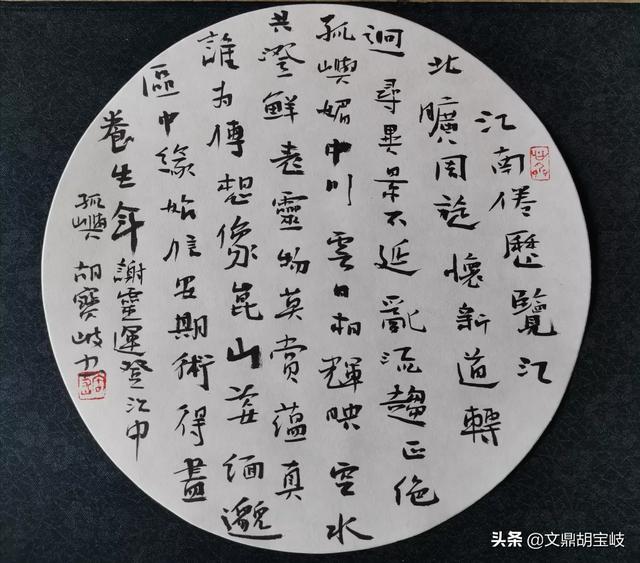 江南倦歷覽江
北曠周旋懷新道轉
迥尋異景不延亂流趨正絕
孤嶼媚中川雲日相輝映空水
共澄鮮表靈物莫賞蘊真
誰为傳想像崑山姿緬邈
區中緣始信安期術得盡
養生年謝靈運登江中
孤嶼胡寶岐书
头条 @文鼎胡宝岐